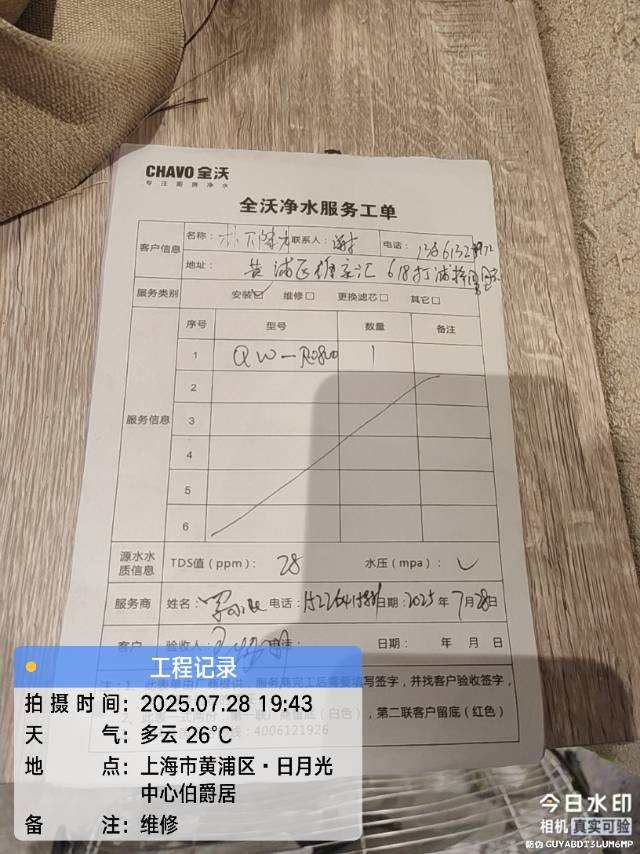 CHAVO 全沃
专注厨房净水
全沃净水服务工单
客户信息 名称: 联系人: 谢 电话:
地址: 黄浦区徐家汇 618 打浦桥
服务类别 安装☑ 维修□ 更换滤芯□ 其它□
服务信息 序号 型号 数量 备注
1 QW-R0800 1
2
3
4
5
6
源水水质信息 TDS值(ppm): 28 水压(mpa): ✓
服务商 姓名: 电话: 日期: 2025年7月28日
客户 验收人: 电话: 日期: 年 月 日
注: 1、此表单由厂商提供,服务商完工后需要填写签字,并找客户验收签字,
2、此表一式两份,第一联厂商留底(白色),第二联客户留底(红色)
4006121926
工程记录
拍摄时间: 2025.07.28 19:43
天气: 多云 26℃
地点: 上海市黄浦区·日月光
中心伯爵居
备注: 维修
今日水印
相机 真实可验
防伪 GUYABDT3LUM6MP